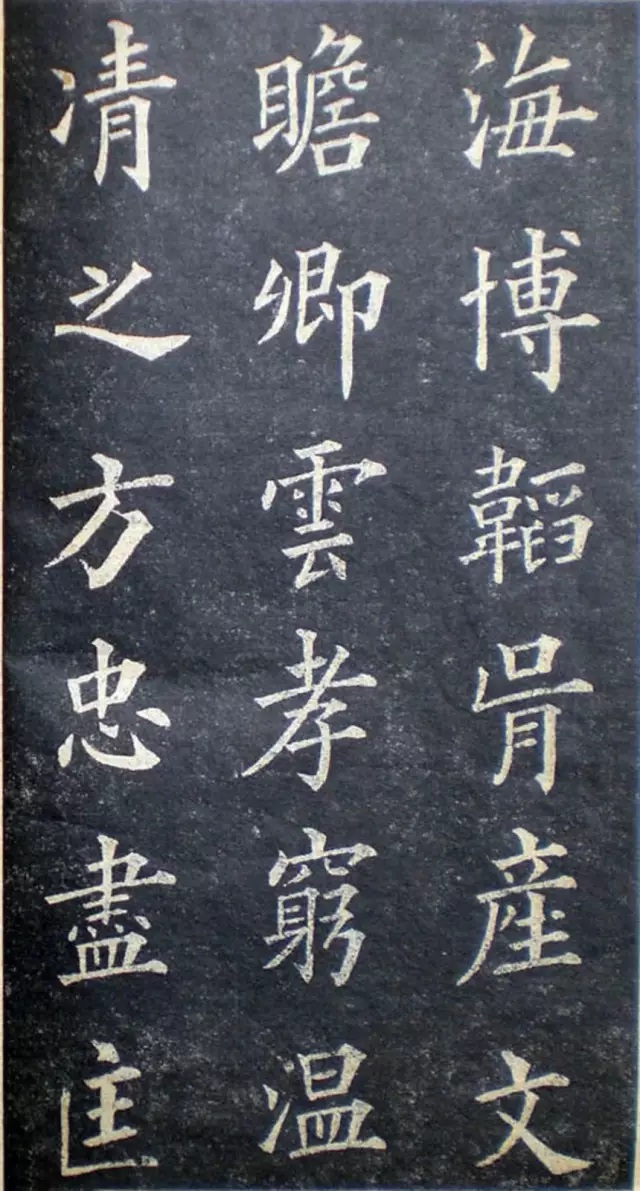 海博韜胄產文
瞻卿雲孝窮温
凊之方忠盡匡